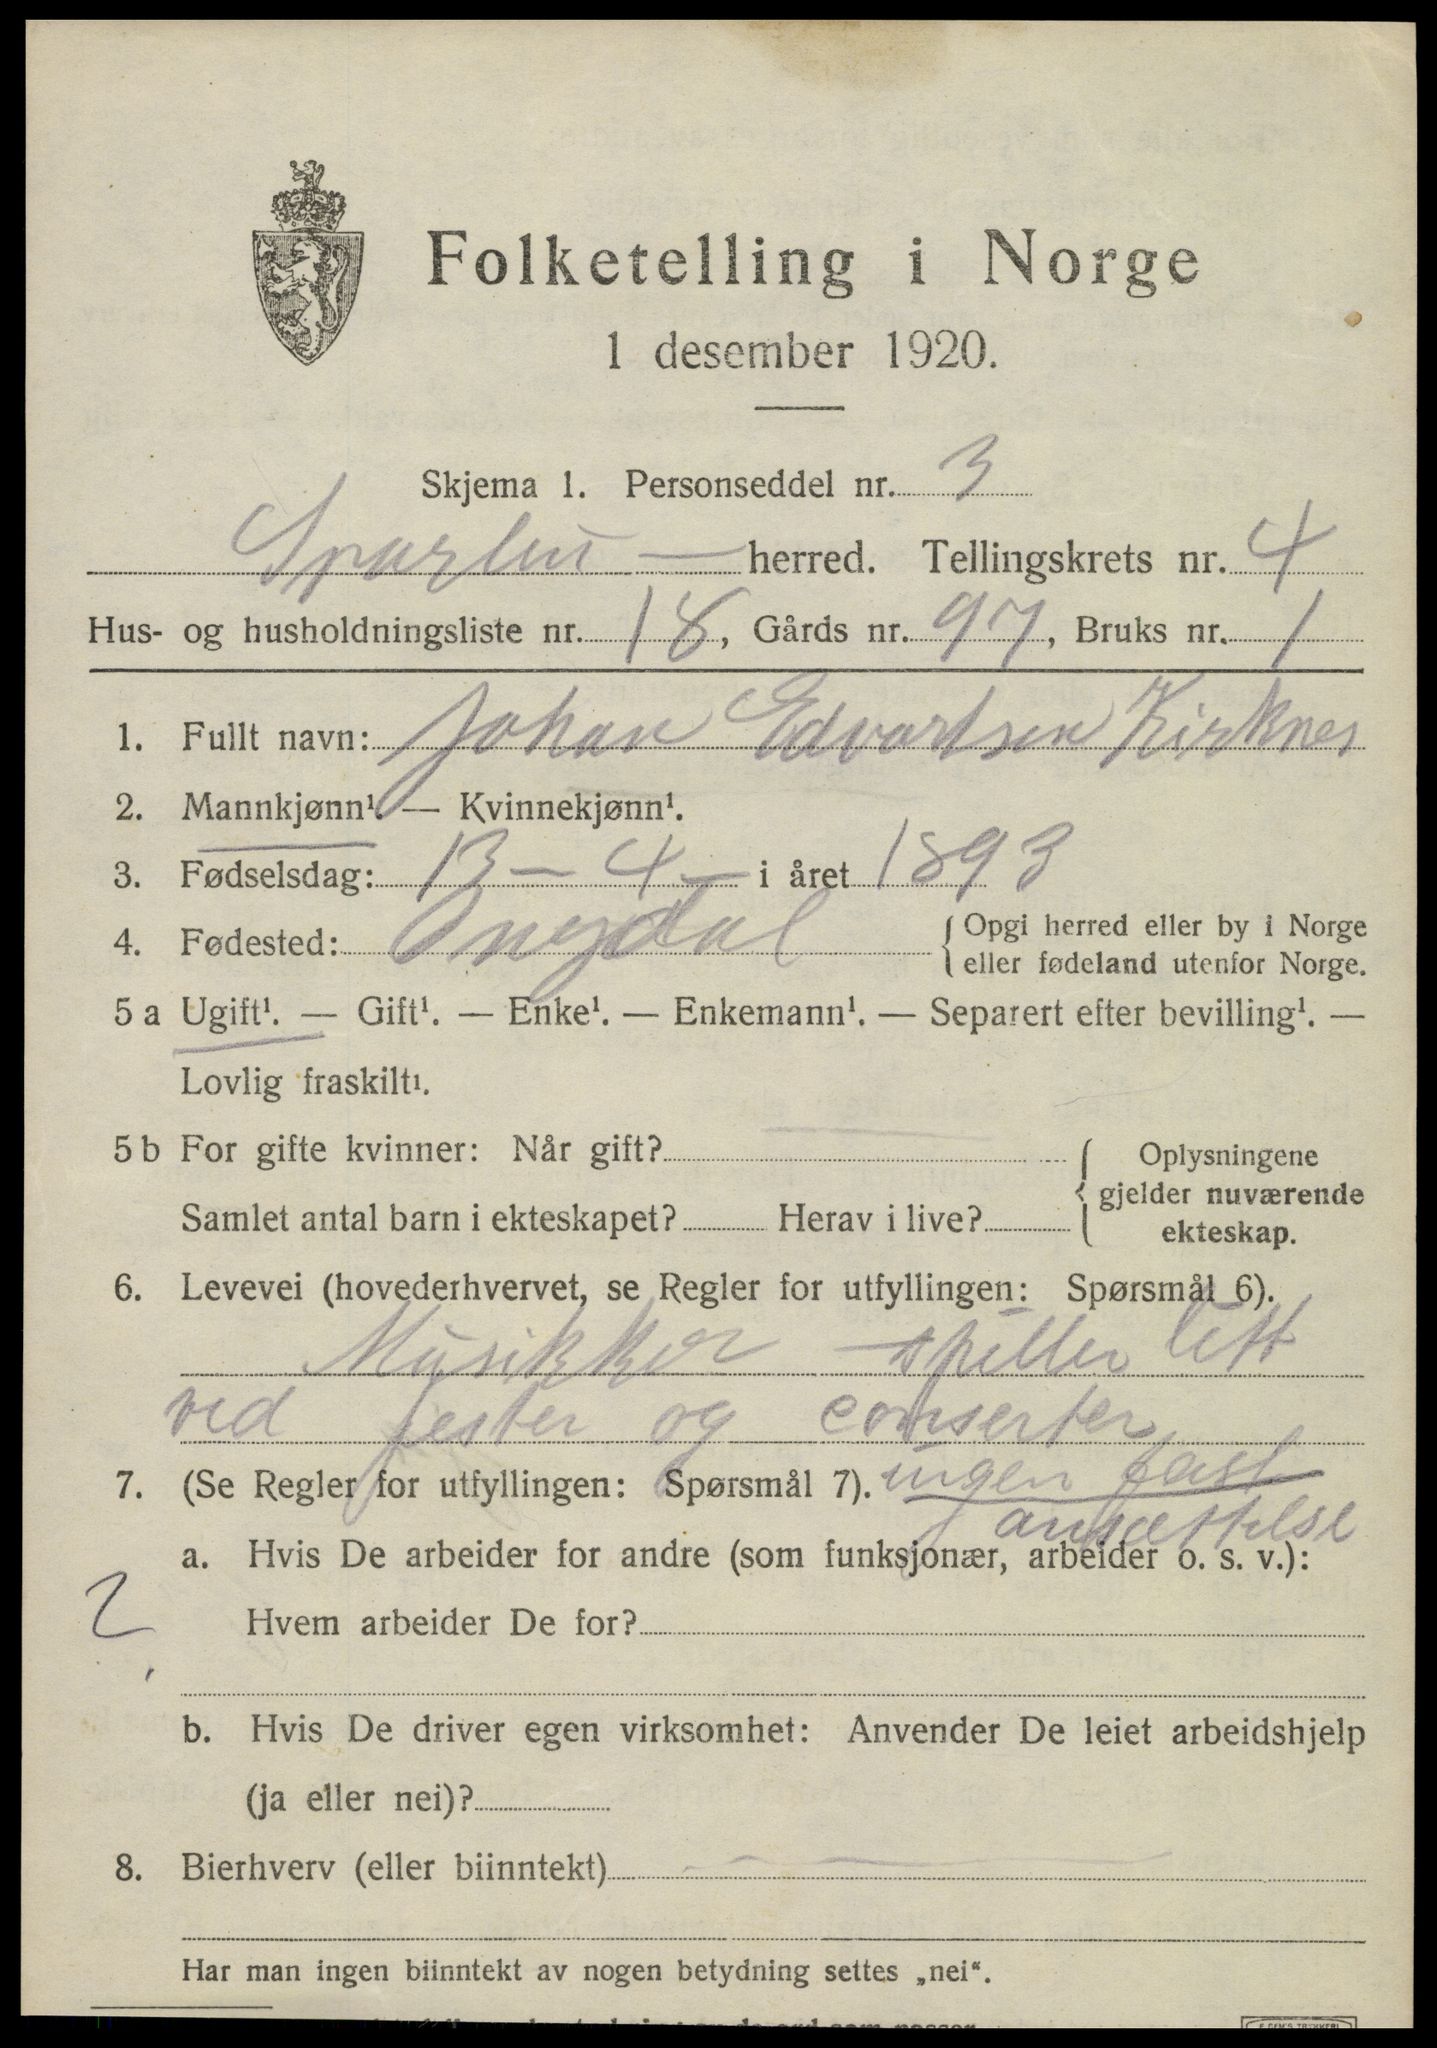 Folketelling i Norge
1 desember 1920.
Skjema 1. Personseddel nr. 3
Sparbu — herred. Tellingskrets nr. 4
Hus- og husholdningsliste nr. 18, Gårds nr. 97, Bruks nr. 1
1. Fullt navn: Johan Edvartsen Kirknes
2. Mannkjønn¹. — Kvinnekjønn¹.
3. Fødselsdag: 13 - 4 - i året 1893
4. Fødested: {Opgi herred eller by i Norge
eller fødeland utenfor Norge.
5 a Ugift¹. — Gift¹. — Enke¹. — Enkemann¹. — Separert efter bevilling¹. —
Lovlig fraskilt¹.
5 b For gifte kvinner: Når gift? { Oplysningene
gjelder nuværende
Samlet antal barn i ekteskapet? Herav i live?
ekteskap.
6. Levevei (hovederhvervet, se Regler for utfyllingen: Spørsmål 6).
Musikker spiller litt
ved fester og conserter
7. (Se Regler for utfyllingen: Spørsmål 7). ingen fast
ansættelse
a. Hvis De arbeider for andre (som funksjonær, arbeider o. s. v.):
2
Hvem arbeider De for?
b. Hvis De driver egen virksomhet: Anvender De leiet arbeidshjelp
(ja eller nei)?
8. Bierhverv (eller biinntekt) —
Har man ingen biinntekt av nogen betydning settes „nei“.